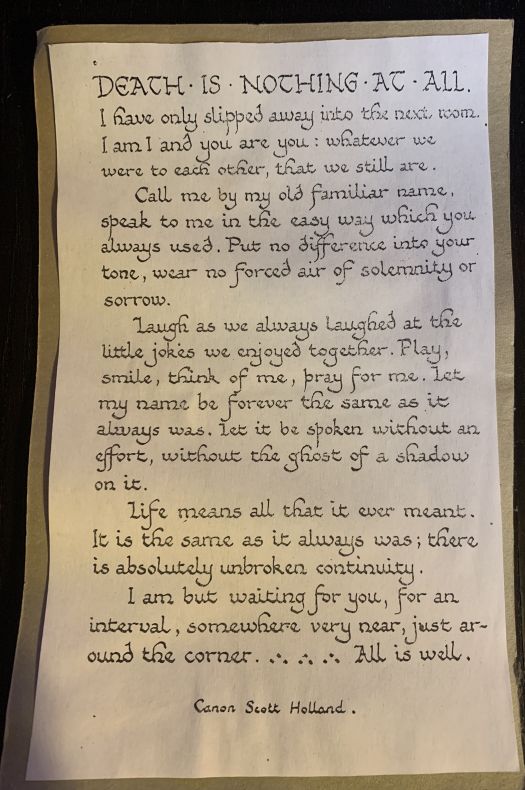 DEATH · IS · NOTHING · AT · ALL.
I have only slipped away into the next room.
I am I and you are you : whatever we
were to each other, that we still are.
Call me by my old familiar name,
speak to me in the easy way which you
always used. Put no difference into your
tone, wear no forced air of solemnity or
sorrow.
Laugh as we always laughed at the
little jokes we enjoyed together. Play,
smile, think of me, pray for me. Let
my name be forever the same as it
always was. Let it be spoken without an
effort, without the ghost of a shadow
on it.
Life means all that it ever meant.
It is the same as it always was; there
is absolutely unbroken continuity.
I am but waiting for you, for an
interval, somewhere very near, just ar-
ound the corner. ∴ ∴ ∴ All is well.
Canon Scott Holland.